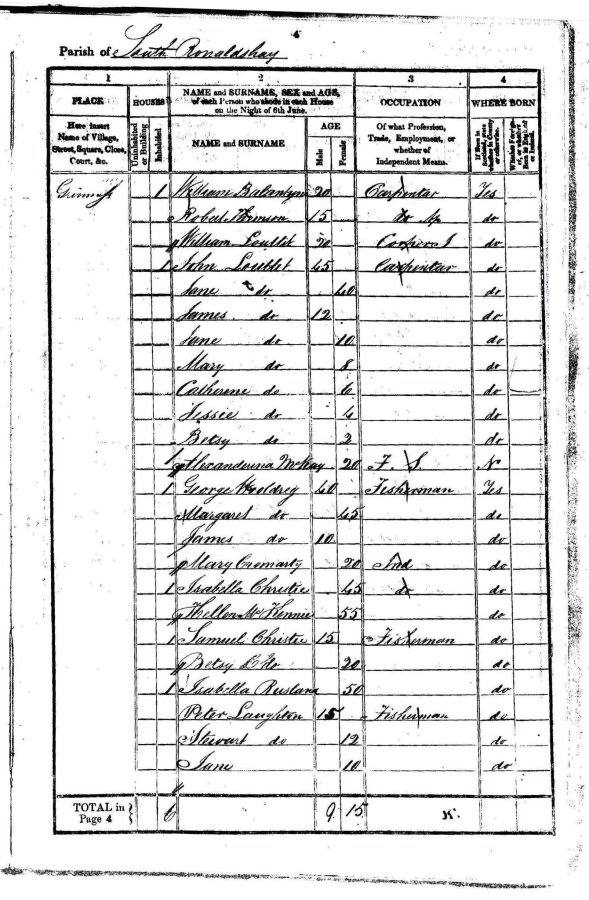 4
Parish of South Ronaldshay
1 2 3 4
PLACE HOUSES NAME and SURNAME, SEX and AGE, of each Person who abode in each House on the Night of 6th June. OCCUPATION WHERE BORN
Here insert Name of Village, Street, Square, Close, Court, &c. Uninhabited or Building Inhabited NAME and SURNAME AGE Male Female Of what Profession, Trade, Employment, or whether of Independent Means. If Born in Scotland, state whether in County or otherwise. Whether Foreigner, or whether Born in England or Ireland.
Grimness 1 William Balantyne 20 Carpentar Yes
Robert 15 do Ap do
William Louttit 20 do
1 John Louttit 45 Carpentar do
Jane do 40 do
James do 12 do
Jane do 10 do
Mary do 8 do
Catherine do 6 do
Jessie do 4 do
Betsy do 2 do
1 Alexanderina McKay 20 F. S. N
1 George Woldreg 40 Fisherman Yes
Margaret do 45 do
James do 10 do
Mary Cromarty 20 Ind do
1 Isabella Christie 45 do do
Hellen McKennie 55 do
1 Samuel Christie 15 Fisherman do
Betsy do 20 do
1 Isabella Rusland 50 do
Peter Laughton 15 Fisherman do
Stewart do 12 do
Jane 10 do
TOTAL in Page 4 6 9 15 K.